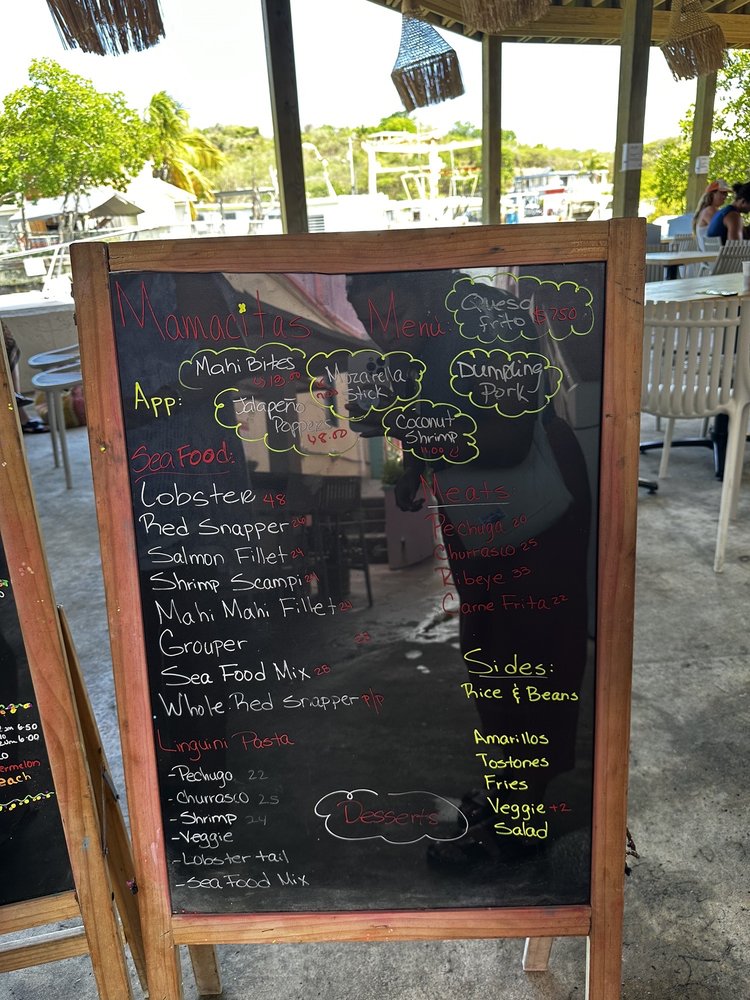 Mamacitas Menú:
Queso frito $7.50
App:
Mahi Bites
13.00
Mozarella Stick
Dumpling Pork
Jalapeño Poppers
8.00
Coconut Shrimp
11.00
Sea Food:
Lobster 48
Red Snapper 26
Salmon Fillet 24
Shrimp Scampi 24
Mahi Mahi Fillet 24
Grouper
Sea Food Mix 28
Whole Red Snapper P/P
Meats
Pechuga 20
Churrasco 25
Ribeye 33
Carne Frita 22
Sides:
Rice & Beans
Amarillos
Tostones
Fries
Veggie +2
Salad
Linguini Pasta
-Pechugo 22
-Churrasco 25
-Shrimp 24
-Veggie
-Lobster tail
-Sea Food Mix
Desserts
6.50
6.00